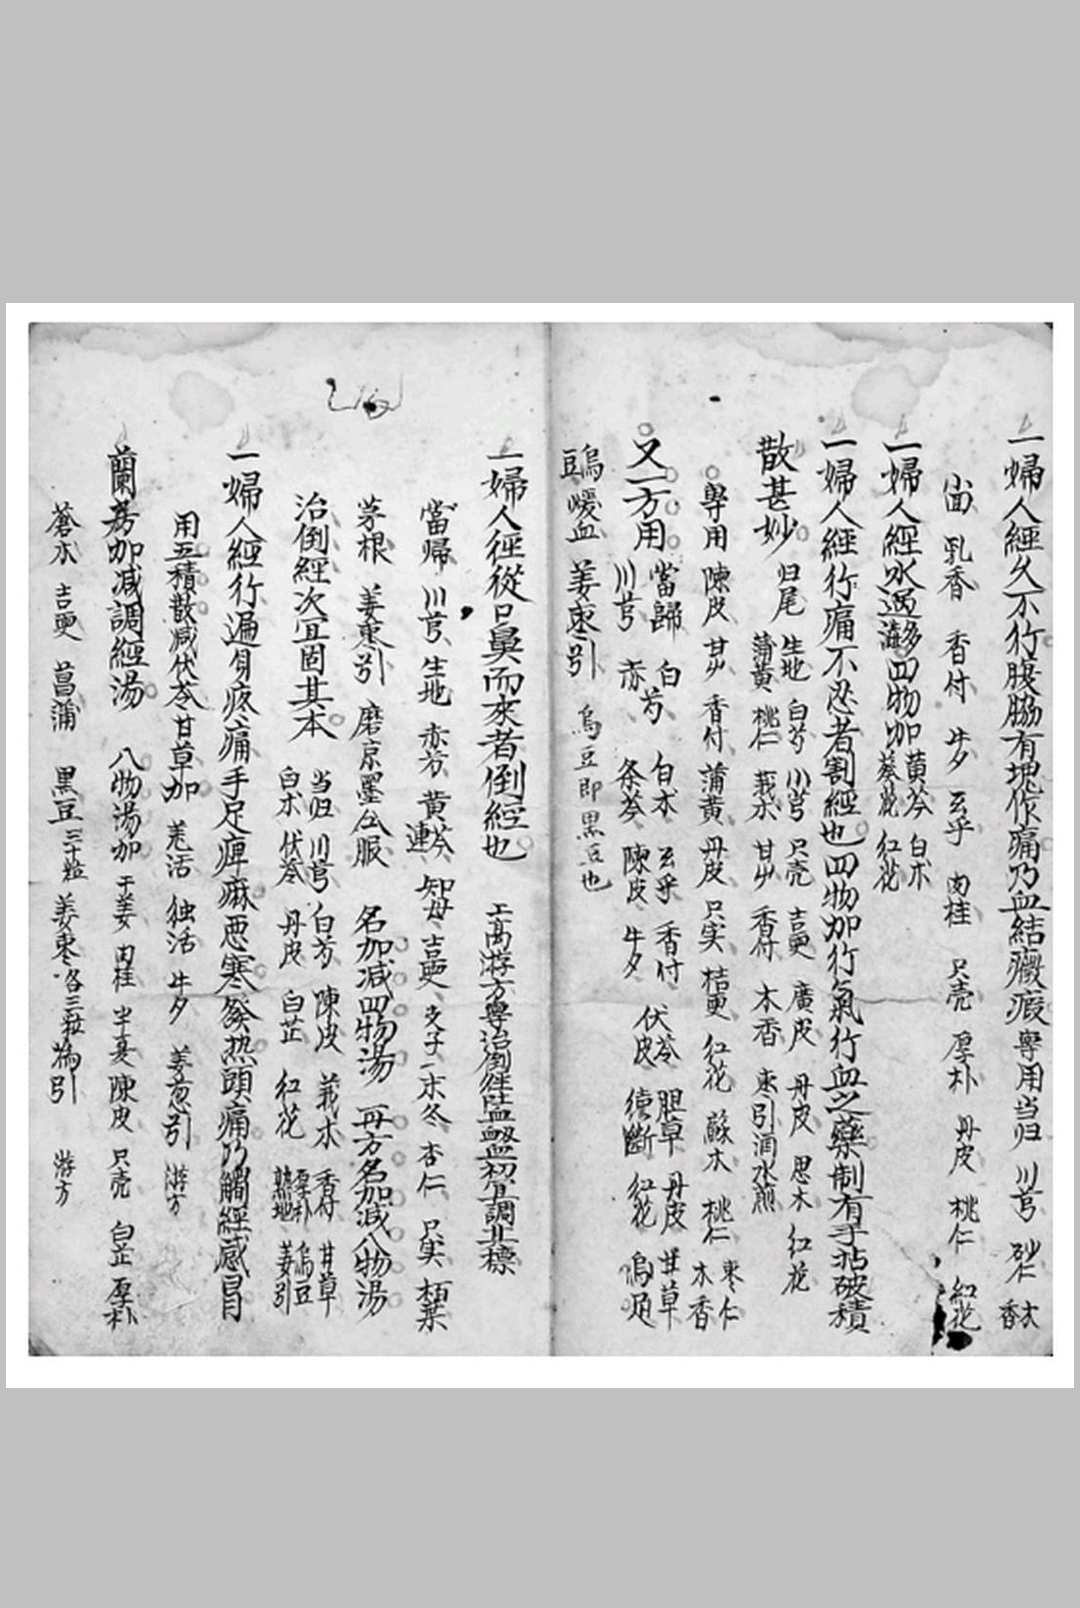 一婦人經久不行腹脇有塊作痛乃血結癥瘕專用当归 川芎 砂仁 木香
小茴 乳香 香付 牛夕 玄乎 肉桂 只壳 厚朴 丹皮 桃仁 紅花
一婦人經水過多四物加黄芩 白朮 葵花 紅花
一婦人經行痛不忍者割經也四物加行氣行血之藥制有手拈破積
散甚妙 归尾 生地 白芍 川芎 只壳 吉更 廣皮 丹皮 思木 红花
蒲黄 桃仁 莪朮 甘艸 香付 木香 枣引酒水煎
專用 陳皮 甘艸 香付 蒲黄 丹皮 只实 桔更 红花 蘇木 桃仁 寒仁 木香
又一方用 當歸 白芍 白朮 玄乎 香付 伏苓皮 胆草 丹皮 甘草
川芎 赤 条芩 陳皮 牛夕 續斷 红花
烏豆 煖血 姜枣引 烏豆即黒豆也
一婦人經從口鼻而來者倒經也
當帰 川芎 生地 赤芍 黄芩連 知母 吉更 冬 杏仁 只实 栢葉
茅根 姜枣引 磨京墨仝服 名加减四物湯 一方名加减八物湯
治倒經次宜固其本 当归 川芎 白芍 陳皮 莪朮 香付 甘草
白朮 伏苓 丹皮 白芷 红花 厚朴 熟地 烏豆 姜引
一婦人經行遍身疼痛手足痺麻悪寒發热頭痛乃觸經感冒
用五積散减伏苓甘草加 羌活 独活 牛夕 姜葱引 游方
蘭房加减調經湯 八物湯加 干姜 肉桂 半夏 陳皮 只壳 白芷 厚朴
蒼朮 吉更 菖蒲 黒豆三十粒 姜枣各三 引 游方